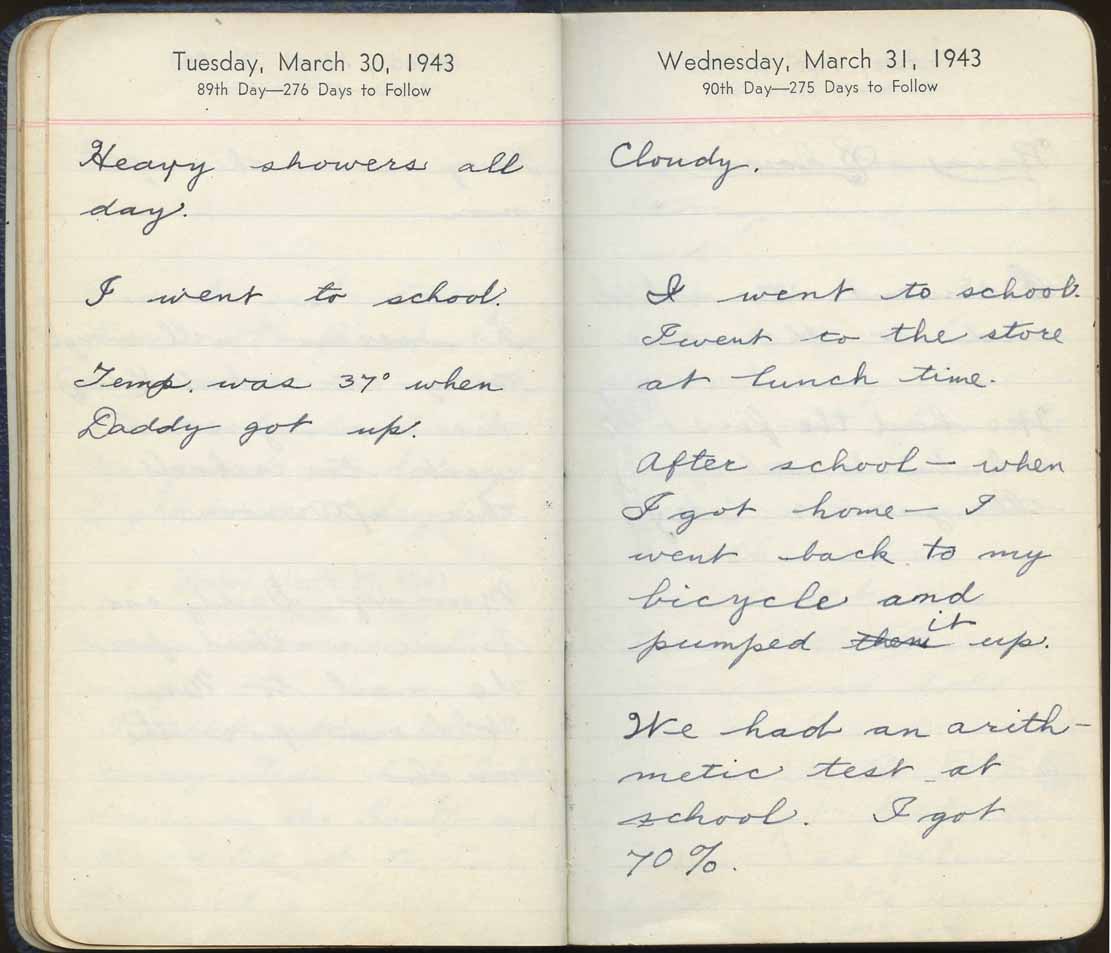 Tuesday, March 30, 1943
89th Day—276 Days to Follow
Heavy showers all
day.
I went to school.
Temp. was 37° when
Daddy got up.
Wednesday, March 31, 1943
90th Day—275 Days to Follow
Cloudy.
I went to school.
I went to the store
at lunch time.
After school — when
I got home — I
went back to my
bicycle and
pumped it up.
We had an arith-
metic test at
school. I got
70%.